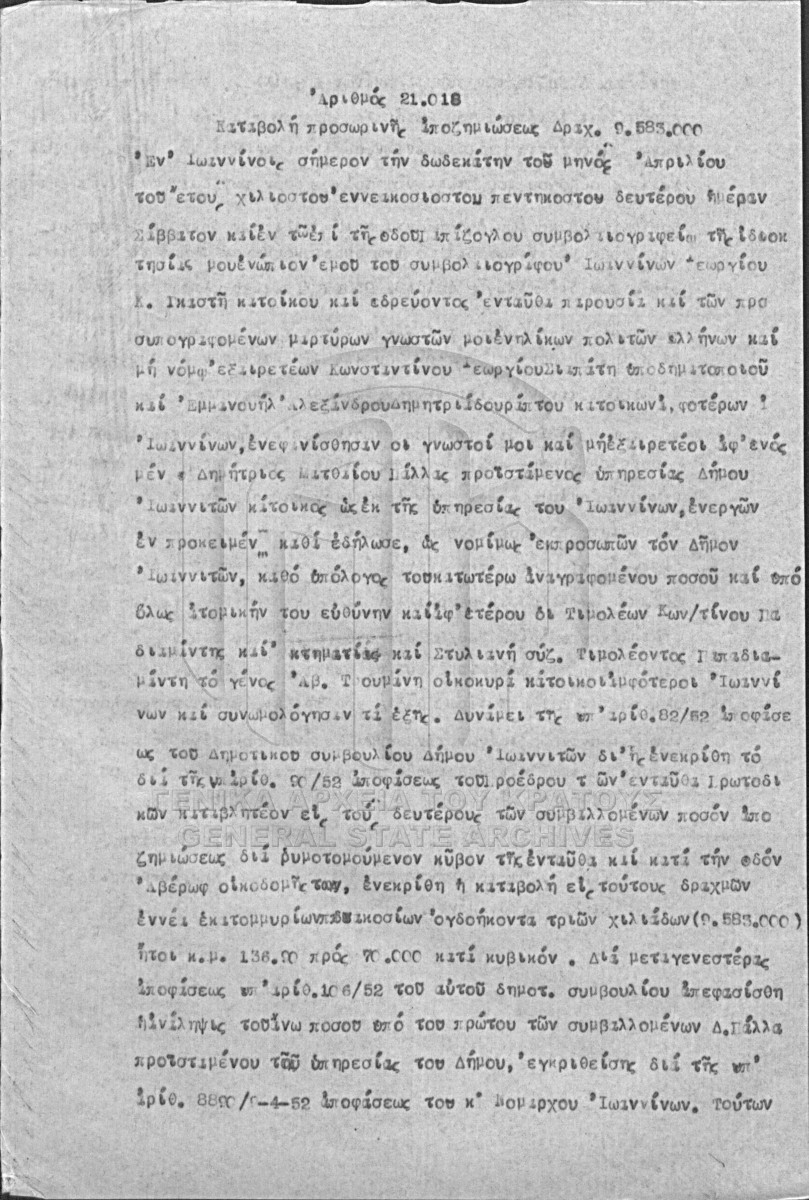 Ἀριθμός 21.018
Καταβολή προσωρινῆς ἀποζημιώσεως Δραχ. 9.583.000
Ἐν Ἰωαννίνοις σήμερον τήν δωδεκάτην τοῦ μηνός Ἀπριλίου
τοῦ ἔτους χιλιοστοῦ ἐννεακοσιοστοῦ πεντηκοστοῦ δευτέρου ἡμέραν
Σάββατον καί ἐν τῶ ἐπί τῆς ὁδοῦ συμβολαιογραφείῳ τῆς ἰδιοκ
τησίας μου ἐνώπιον ἐμοῦ τοῦ συμβολαιογράφου Ἰωαννίνων Γεωργίου
Κ. κατοίκου καί ἑδρεύοντος ἐνταῦθα παρουσία καί τῶν προ
συπογραφομένων μαρτύρων γνωστῶν μοι ἐνηλίκων πολιτῶν ἑλλήνων καί
μή νόμῳ ἐξαιρετέων Κωνσταντίνου Γεωργίου ὑποδηματοποιοῦ
καί Ἐμμανουήλ Ἀλεξάνδρου Δημητριάδου κατοίκων ἀμφοτέρων
Ἰωαννίνων, ἐνεφανίσθησαν οἱ γνωστοί μοι καί μή ἐξαιρετέοι ἀφ' ἑνός
μέν ὁ Δημήτριος Ματθαίου Πάλλας προϊστάμενος ὑπηρεσίας Δήμου
Ἰωαννιτῶν κάτοικος ὡς ἐκ τῆς ὑπηρεσίας του Ἰωαννίνων, ἐνεργῶν
ἐν προκειμένῳ καθά ἐδήλωσε, ὡς νομίμως ἐκπροσωπῶν τόν Δῆμον
Ἰωαννιτῶν, καθό ὑπόλογος τοῦ κατωτέρω ἀναγραφομένου ποσοῦ καί ὑπό
ὅλως ἀτομικήν του εὐθύνην καί ἀφ' ἑτέρου δι Τιμολέων Κων/τίνου Πα
διαμάντης καί κτηματίας καί Στυλιανή σύζ. Τιμολέοντος Παπαδια-
μάντη τό γένος Ἀβ. Τρουμπίνη οἰκοκυρά κάτοικοι ἀμφότεροι Ἰωαννί
νων καί συνωμολόγησαν τά ἑξῆς. Δυνάμει τῆς ὑπ' ἀριθ. 82/52 ἀποφάσε
ως τοῦ Δημοτικοῦ συμβουλίου Δήμου Ἰωαννιτῶν δι' ἧς ἐνεκρίθη τό
διά τῆς ὑπ' ἀριθ. 90/52 ἀποφάσεως τοῦ Προέδρου τῶν ἐνταῦθα Πρωτοδι
κῶν καταβλητέον εἰς τούς δευτέρους τῶν συμβαλλομένων ποσόν ἀπο
ζημιώσεως διά ρυμοτομούμενον κύβον τῆς ἐνταῦθα καί κατά τήν ὁδόν
Ἀβέρωφ οἰκοδομῆς των, ἐνεκρίθη ἡ καταβολή εἰς τούτους δραχμῶν
ἐννέα ἑκατομμυρίων πεντακοσίων ὀγδοήκοντα τριῶν χιλιάδων (9.583.000)
ἤτοι κ.μ. 136.90 πρός 70.000 κατά κυβικόν . Διά μεταγενεστέρας
ἀποφάσεως ὑπ' ἀριθ. 106/52 τοῦ αὐτοῦ δημοτ. συμβουλίου ἀπεφασίσθη
ἡ ἀνάληψις τοῦ ἄνω ποσοῦ ὑπό τοῦ πρώτου τῶν συμβαλλομένων Δ. Πάλλα
προϊσταμένου τῆς ὑπηρεσίας τοῦ Δήμου, ἐγκριθείσης διά τῆς ὑπ'
ἀριθ. 8890/9-4-52 ἀποφάσεως τοῦ κ' Νομάρχου Ἰωαννίνων. Τούτων
ΓΕΝΙΚΑ ΑΡΧΕΙΑ ΤΟΥ ΚΡΑΤΟΥΣ
GENERAL STATE ARCHIVES